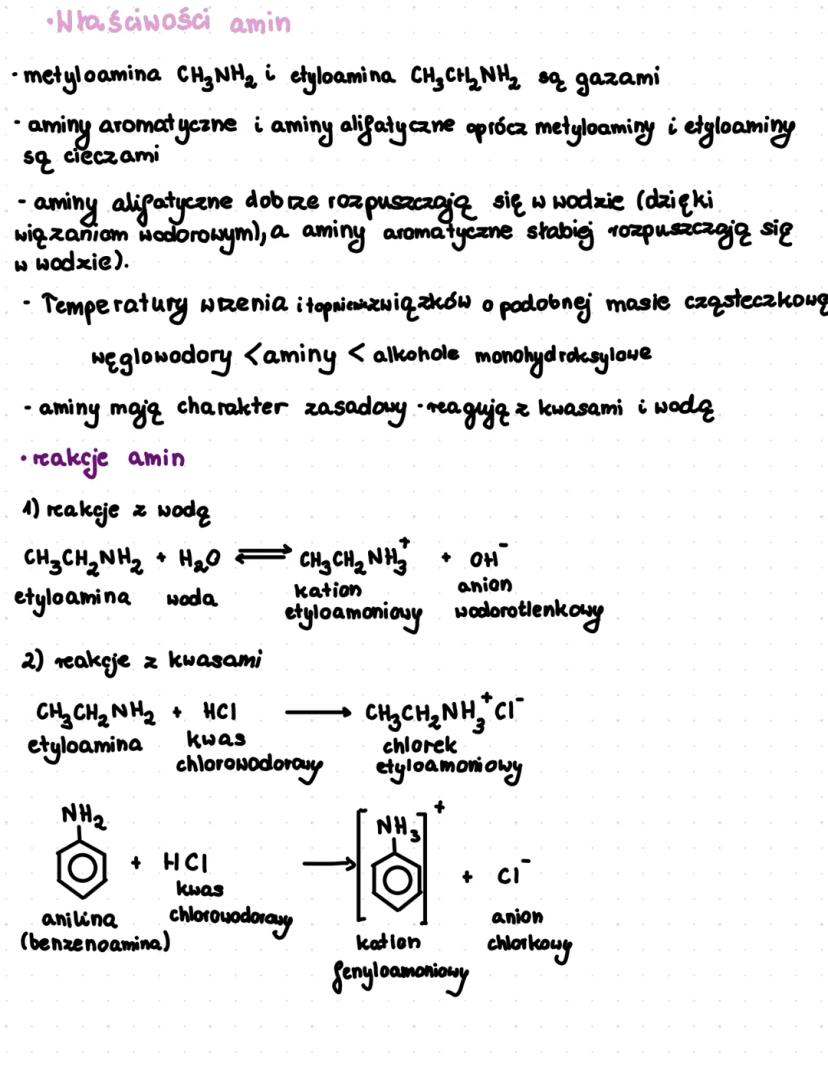 •Właściwości amin
• metyloamina CH₃NH₂ i etyloamina CH₃CH₂NH₂ są gazami
• aminy aromatyczne i aminy alifatyczne oprócz metyloaminy i etyloaminy
są cieczami
- aminy alifatyczne dobrze rozpuszczają się w wodzie (dzięki
wiązaniom wodorowym), a aminy aromatyczne słabiej rozpuszczają się
w wodzie).
- Temperatury wrzenia i topnienia związków o podobnej masie cząsteczkowej
węglowodory < aminy < alkohole monohydroksylowe
- aminy mają charakter zasadowy - reagują z kwasami i wodą
• reakcje amin
1) reakcje z wodą
CH₃CH₂NH₂ + H₂O ⇌ CH₃CH₂NH₃⁺ + OH⁻
etyloamina woda kation etyloamoniowy anion wodorotlenkowy
2) reakcje z kwasami
CH₃CH₂NH₂ + HCl → CH₃CH₂NH₃⁺Cl⁻
etyloamina kwas chlorowodorowy chlorek etyloamoniowy
NH₂ + HCl → [NH₃]⁺ + Cl⁻
anilina (benzenoamina) kwas chlorowodorowy kation fenyloamoniowy anion chlorkowy